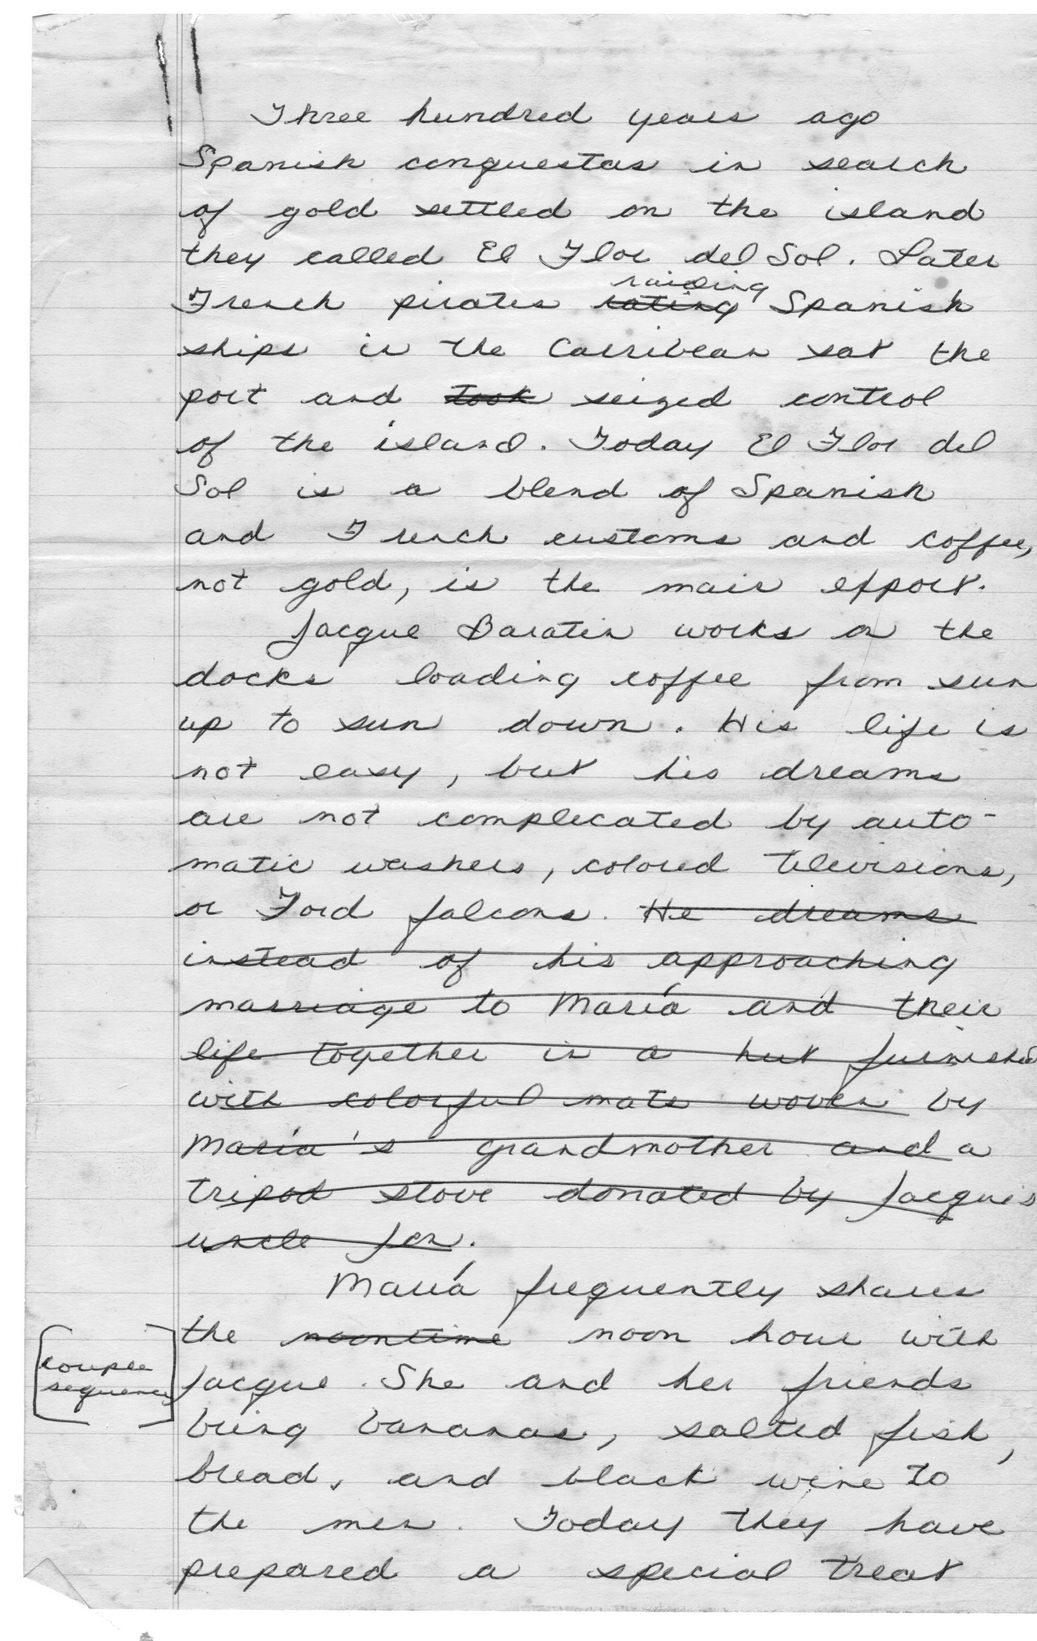 Three hundred years ago
Spanish conquestas in search
of gold settled on the island
they called El Flor del Sol. Later
raiding
French pirates rating Spanish
ships in the Carribean sat the
port and took seized control
of the island. Today El Flor del
Sol is a blend of Spanish
and French customs and coffee,
not gold, is the main export.
Jacque Baratin works on the
docks loading coffee from sun
up to sun down. His life is
not easy, but his dreams
are not complecated by auto-
matic washers, colored televisions,
or Ford falcons. He dreams
instead of his approaching
marriage to María and their
life together in a hut furnished
with colorful mats woven by
María's grandmother and a
tripod stove donated by Jacque's
uncle Jon.
María frequently shares
the noontime noon hour with
[couple
sequence]
Jacque. She and her friends
bring bananas, salted fish,
bread, and black wine to
the men. Today they have
prepared a special treat